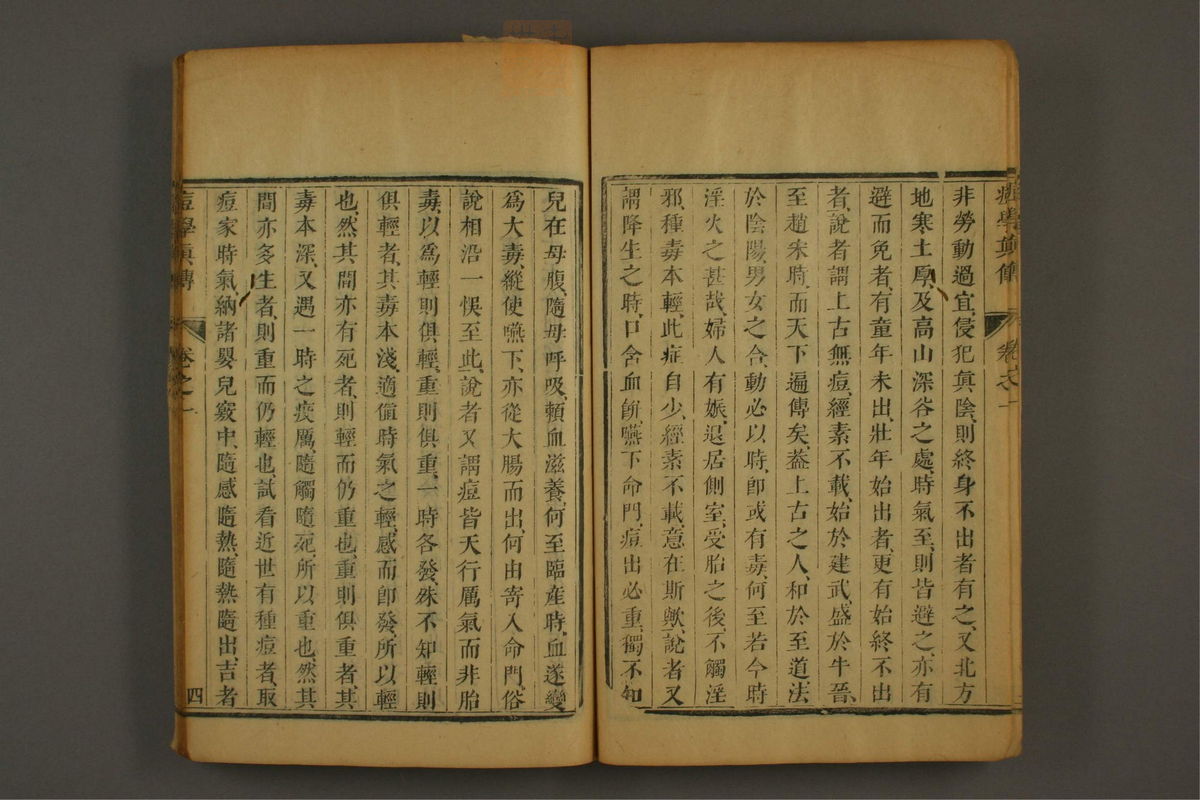 痘學真傳 卷之一
非勞動過宜、侵犯真陰、則終身不出者有之、又北方
地寒土厚、及高山深谷之處、時氣至、則皆避之、亦有
避而免者、有童年未出壯年始出者、更有始終不出
者、說者謂上古無痘、經素不載、始於建武盛於牛晉、
至趙宋時、而天下遍傳矣、蓋上古之人、和於至道法
於陰陽、男女之合、動必以時、卽或有毒、何至若今時
淫火之甚哉、婦人有娠、退居側室、受胎之後、不觸淫
邪、種毒本輕、此症自少、經素不載、意在斯歟、說者又
謂降生之時、口含血餅、嚥下命門、痘出必重、獨不知
兒在母腹、隨母呼吸、賴血滋養、何至臨產時、血遂變
爲大毒、縱使嚥下、亦從大腸而出、何由寄入命門、俗
說相沿一悞至此、說者又謂痘皆天行厲氣而非胎
毒、以爲輕則俱輕、重則俱重、一時各發、殊不知輕則
俱輕者、其毒本淺、適值時氣之輕、感而卽發、所以輕
也、然其間亦有死者、則輕而仍重也、重則俱重者、其
毒本深、又遇一時之疫厲、隨觸隨死、所以重也、然其
間亦多生者、則重而仍輕也、試看近世有種痘者、取
痘家時氣納諸嬰兒竅中、隨感隨熱、隨熱隨出、吉者
痘學真傳 卷之一 四